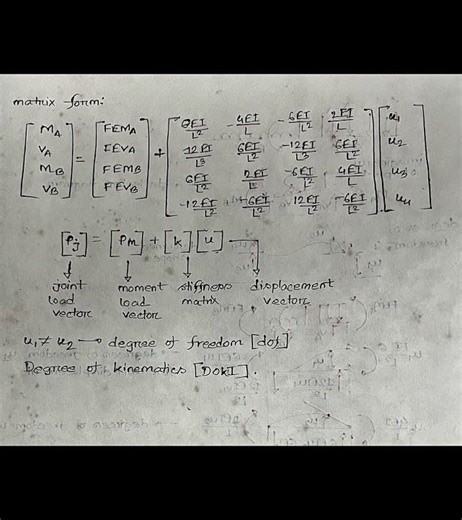 matrix form:
[M_A V_A M_B V_B] = [FEM_A FEV_A FEM_B FEV_B] + [6EI/L² 4EI/L -6EI/L² 2EI/L
12EI/L³ 6EI/L² -12EI/L³ 6EI/L²
6EI/L² 2EI/L -6EI/L² 4EI/L
-12EI/L³ -6EI/L² 12EI/L³ -6EI/L²] [u₁ u₂ u₃ u₄]
[P_j] = [P_m] + [k] [u]
joint load vector
moment load vector
stiffness matrix
displacement vector
u₁ ≠ u₂ → degree of freedom [dof]
Degree of kinematics [DOKI].